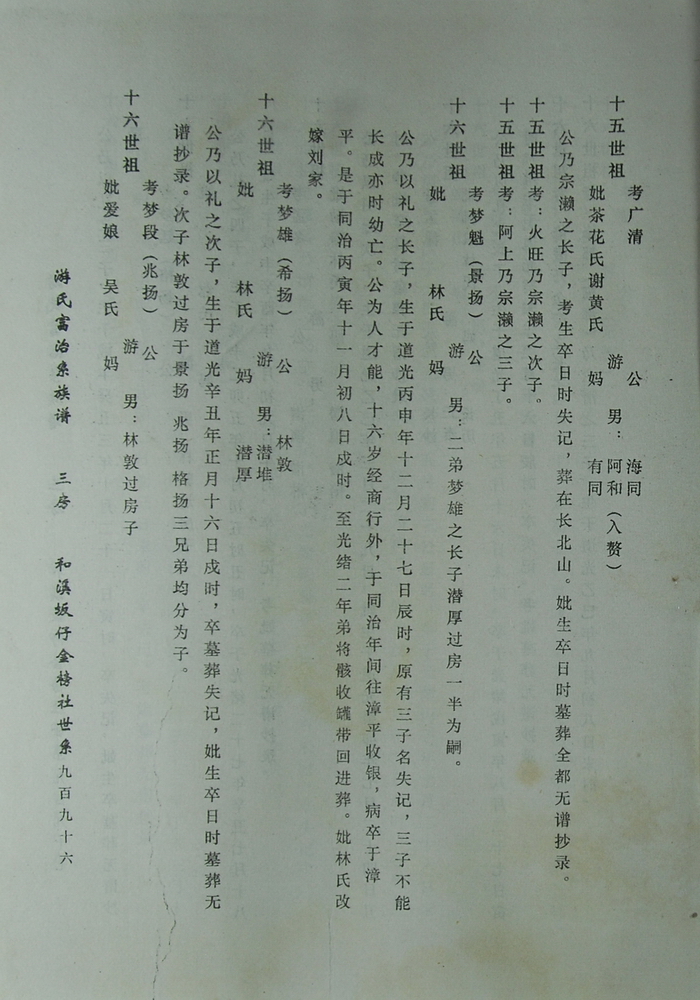 十五世祖 考广清 公 海同
游 男：阿和（入赘）
妣茶花氏谢黄氏 妈 有同
公乃宗濑之长子，考生卒日时失记，葬在长北山。妣生卒日时墓葬全都无谱抄录。
十五世祖考：火旺乃宗濑之次子。
十五世祖考：阿上乃宗濑之三子。
十六世祖 考梦魁（景扬）公
游 男：二弟梦雄之长子潜厚过房一半为嗣。
妣 林氏 妈
公乃以礼之长子，生于道光丙申年十二月二十七日辰时，原有三子名失记，三子不能
长成亦时幼亡。公为人才能，十六岁经商行外，于同治年间往漳平收银，病卒于漳
平。是于同治丙寅年十一月初八日戌时。至光绪二年弟将骸收罐带回进葬。妣林氏改
嫁刘家。
十六世祖 考梦雄（希扬）公 林敦
游 男：潜堆
妣 林氏 妈 潜厚
公乃以礼之次子，生于道光辛丑年正月十六日戌时，卒墓葬失记，妣生卒日时墓葬无
谱抄录。次子林敦过房于景扬 兆扬 格扬三兄弟均分为子。
十六世祖 考梦段（兆扬）公
游 男：林敦过房子
妣爱娘 吴氏 妈
游氏富治系族谱 三房 和溪坂仔金榜社世系九百九十六